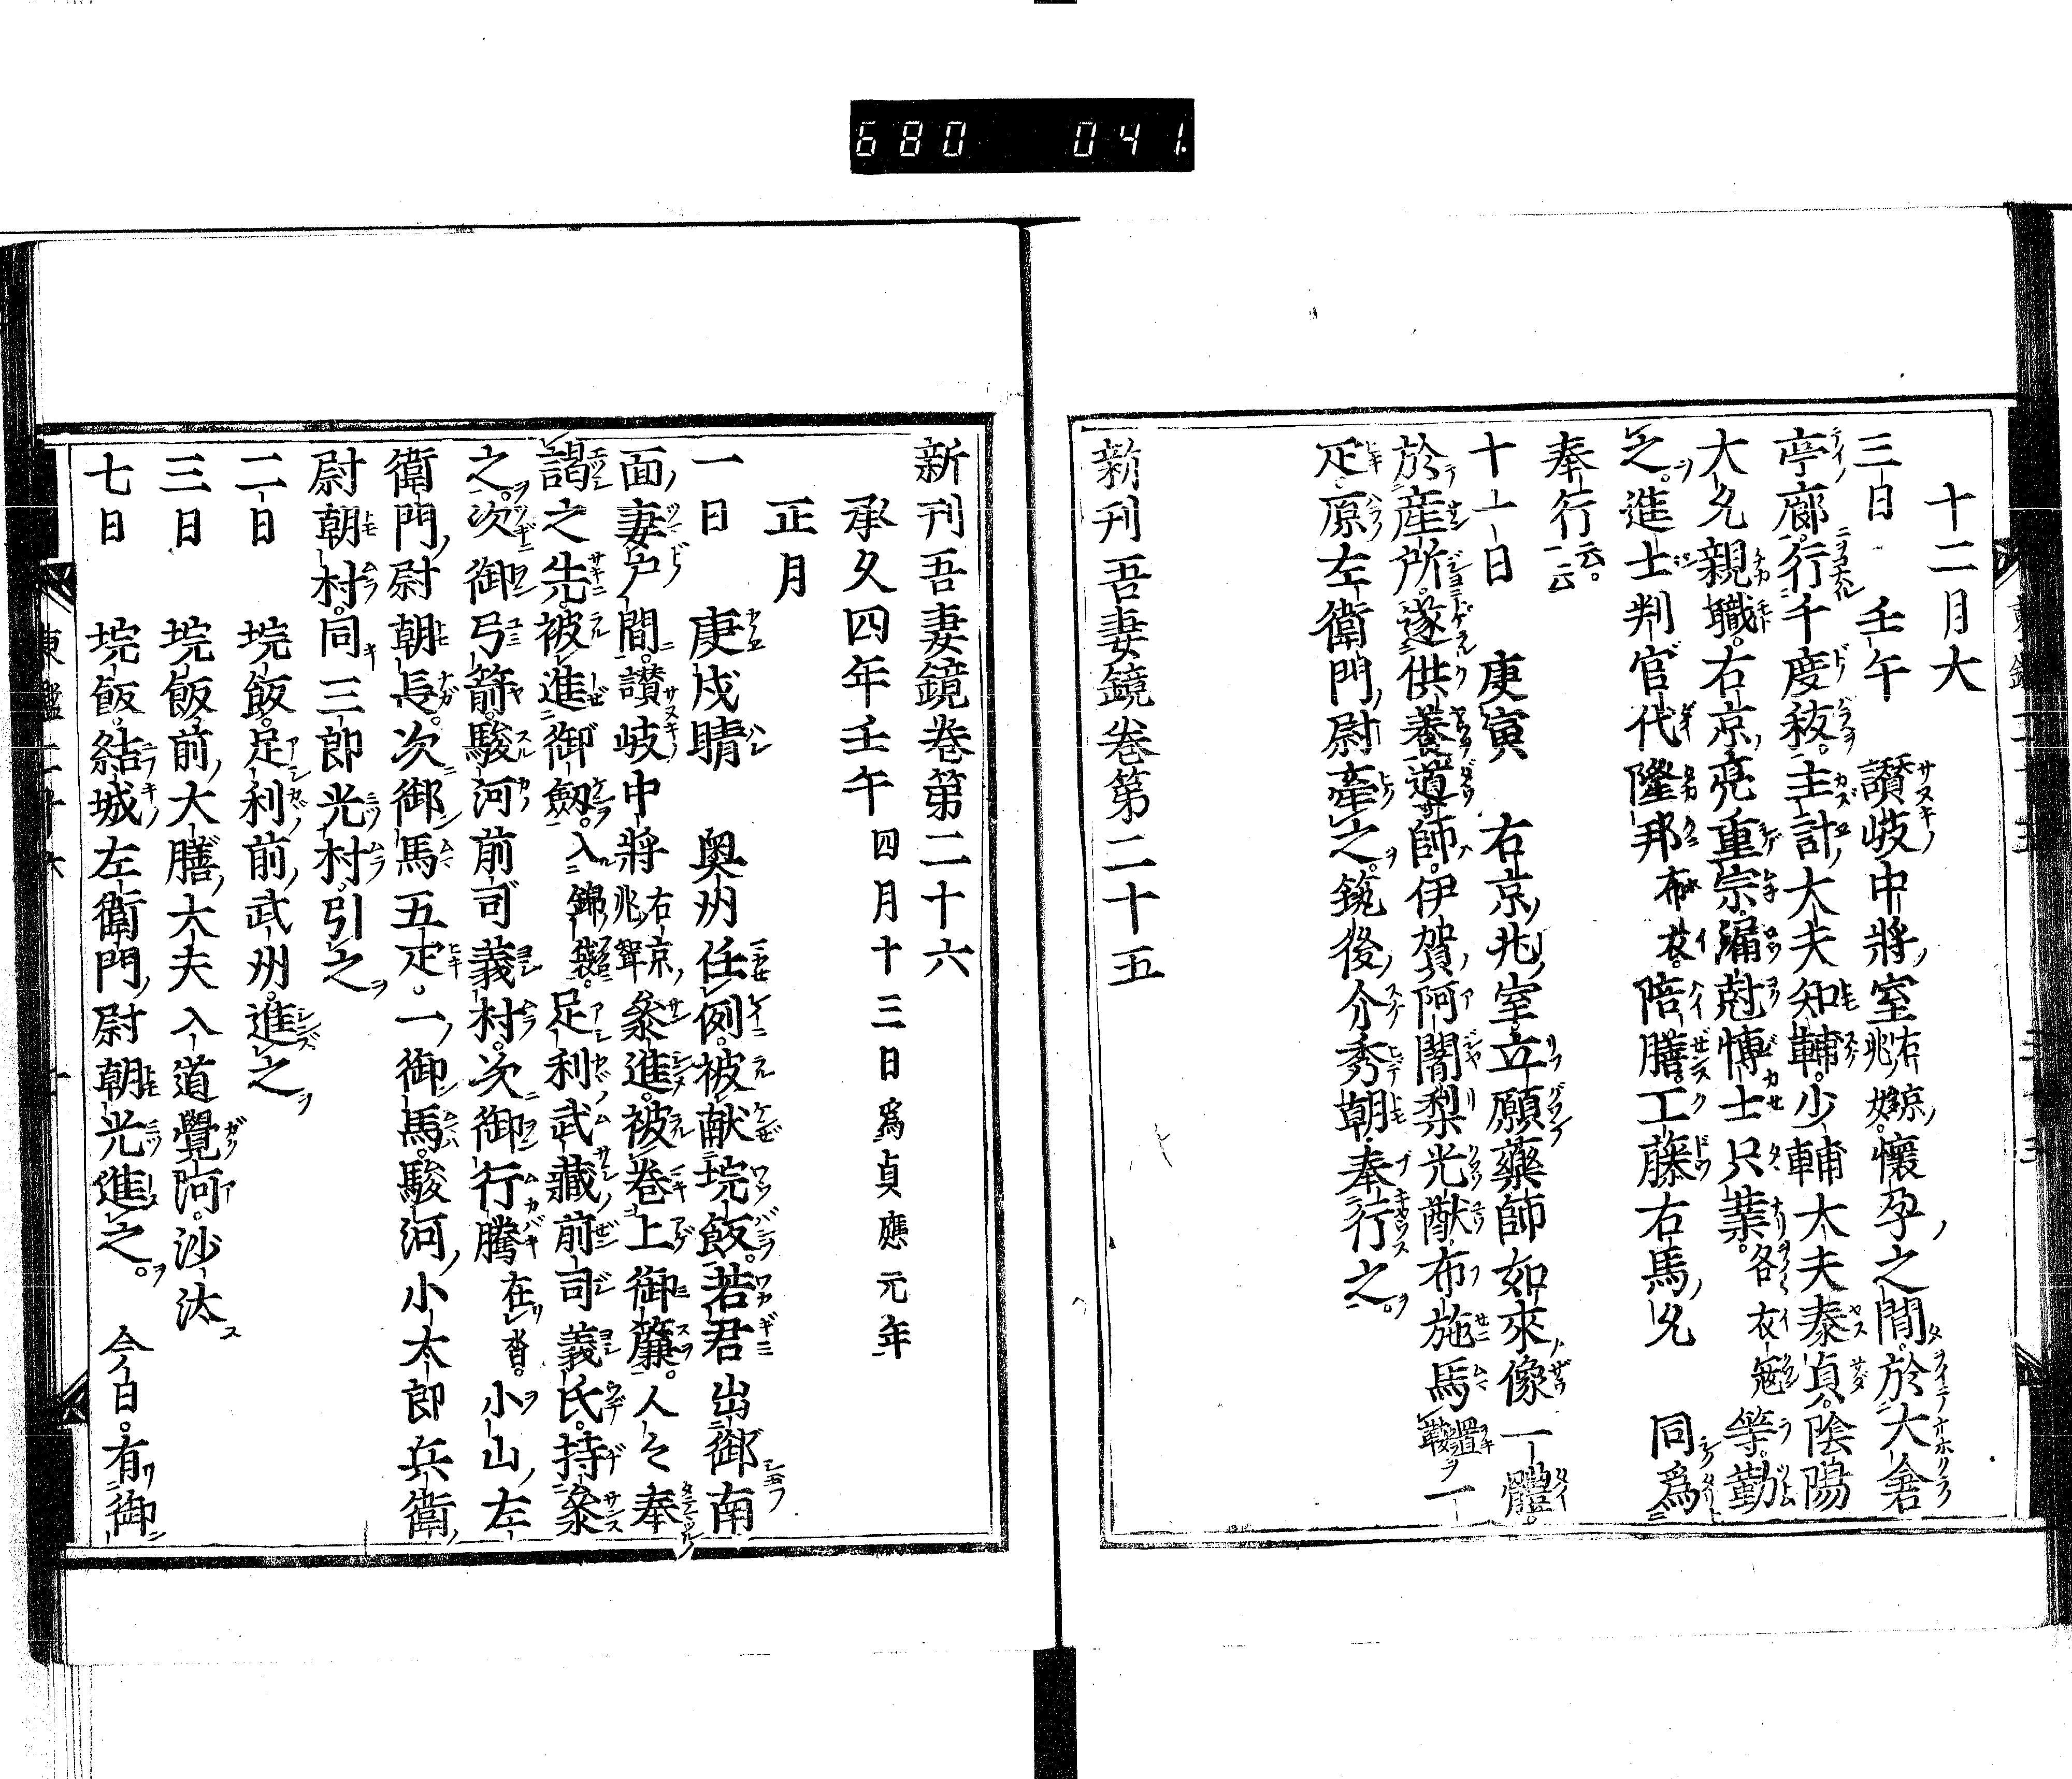 680 041.
十二月大
三日 壬午 讃岐中將室右京兆女懷孕之間。於大倉
亭廊。行千度秡。主計大夫知輔。少輔大夫泰貞。陰陽
大允親職。右京亮重宗。漏尅博士只業。各衣冠等。勤
之。進士判官代隆邦布衣。陪膳。工藤右馬允 同爲
奉行云云。
十一日 庚寅 右京兆室。立願藥師如來像一體。
於産所。遂供養。道師。伊賀阿闍梨光猷。布施馬置鞍一
疋。原左衛門尉牽之。筑後介秀朝。奉行之。
新刊吾妻鏡卷第二十五
新刊吾妻鏡卷第二十六
承久四年壬午四月十三日爲貞應元年
正月
一日 庚戌晴 奥州任例。被献垸飯。若君出御南
面妻戸間。讃岐中將右京兆聟參進。被巻上御簾。人々奉
謁之先。被進御劔。入錦袋。足利武藏前司義氏。持參
之。次御弓箭。駿河前司義村。次御行騰在沓。小山左
衛門尉朝長。次御馬五疋。一御馬。駿河小太郎兵衛
尉朝村。同三郎光村。引之
二日 垸飯。足利前武州。進之
三日 垸飯前大膳大夫入道覺阿。沙汰
七日 垸飯。結城左衛門尉朝光進之。 今日。有御